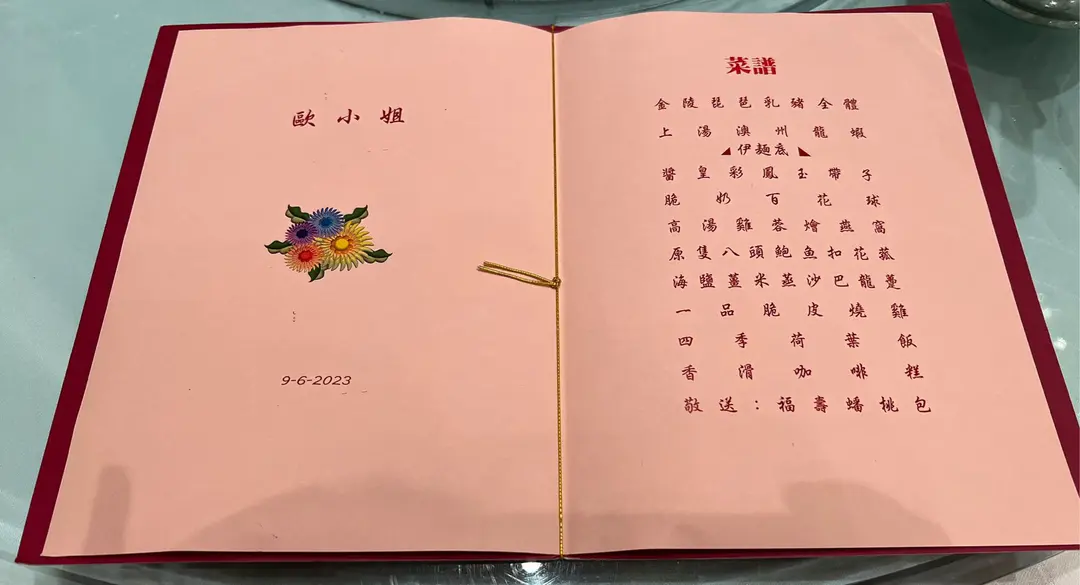 歐小姐
9-6-2023
菜譜
金陵琵琶乳豬全體
上湯澳州龍蝦
伊麵底
醬皇彩鳳玉帶子
脆奶百花球
高湯雞蓉燴燕窩
原隻八頭鮑魚扣花菰
海鹽薑米蒸沙巴龍躉
一品脆皮燒雞
四季荷葉飯
香滑咖啡糕
敬送：福壽蟠桃包